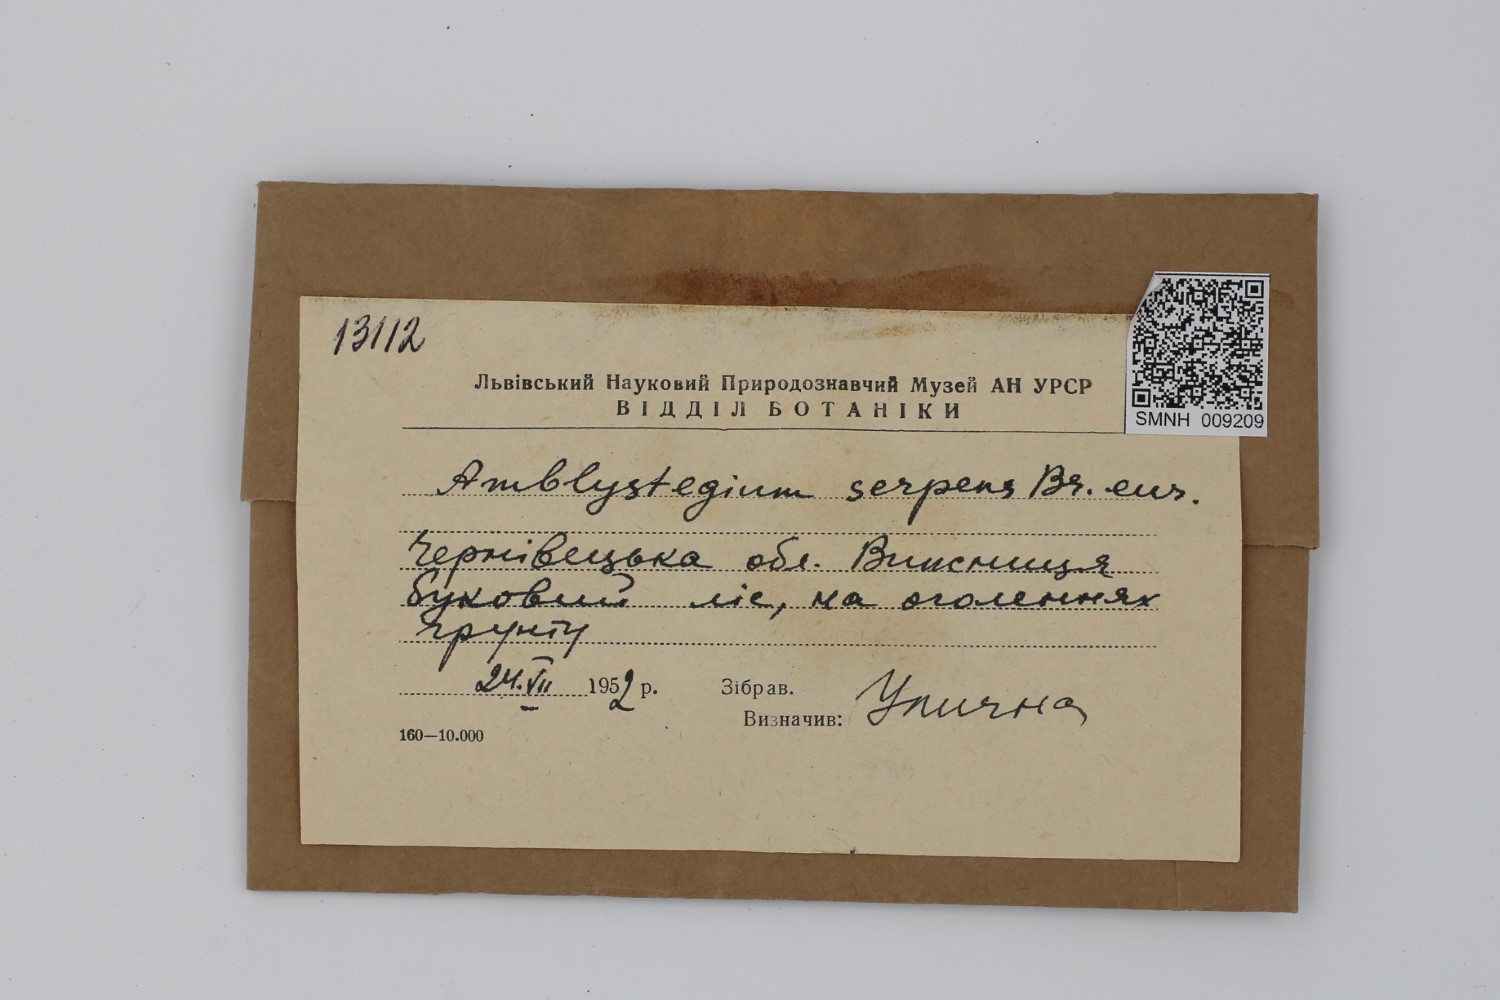 13112
Львівський Науковий Природознавчий Музей АН УРСР
ВІДДІЛ БОТАНІКИ
SMNH 009209
Amblystegium serpens Br. eur.
Чернівецька обл. Вижниця
буковий ліс, на оголеннях
грунту
24.VII 1952 р. Зібрав.
Визначив: Улична
160—10.000